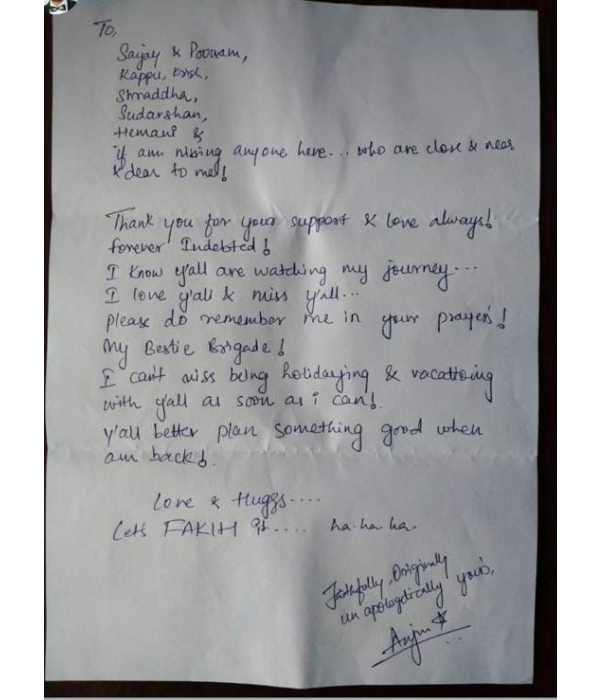 To,
Saijay & Poonam,
Kappu, Krish,
Shraddha,
Sudarshan,
Hemani &
if am missing anyone here... who are close & near
& dear to me!
Thank you for your support & love always!
forever Indebted!
I know y'all are watching my journey...
I love y'all & miss y'all...
please do remember me in your prayers!
My Bestie Brigade!
I can't miss being holidaying & vacationing
with y'all as soon as i can!.
y'all better plan something good when
am back!.
Love & Huggs....
Lets FAKIH it..... ha-ha-ha.
Faithfully, Originally
un apologetically your's,
Anjum